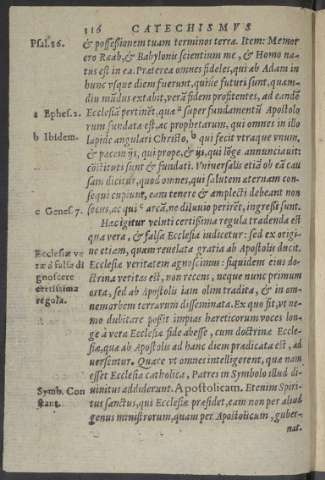 116 CATECHISMVS
Psal. 86. & possessionem tuam terminos terræ. Item: Memor
ero Raab, & Babylonis scientium me, & Homo na-
tus est in ea. Præterea omnes fideles, qui ab Adam in
hunc vsque diem fuerunt, quiue futuri sunt, quam-
diu mundus extabit, verã fidem profitentes, ad eandẽ
a Ephes. 2. Ecclesiã pertinẽt, quæ a super fundamentũ Apostolo
rum fundata est, ac prophetarum, qui omnes in illo
b Ibidem. lapide angulari Christo, b qui fecit vtraque vnum,
& pacem ijs, qui prope, & ijs, qui lõge annunciauit:
cõstituti sunt & fundati. Vniuersalis etiã ob eã cau
sam dicitur, quòd omnes, qui salutem æternam con-
sequi cupiunt, eam tenere & amplecti debeant non
c Genes. 7. secus, ac qui c arcã, ne diluuio perirẽt, ingressi sunt.
Hæc igitur veluti certissima regula tradenda est
qua vera, & falsa Ecclesia iudicetur: sed ex origi-
Ecclesiæ ve ne etiam, quam reuelata gratia ab Apostolis ducit.
ræ à falsa di Ecclesiæ veritatem agnoscimus: siquidem eius do-
gnoscere ctrina veritas est, non recens, neque nunc primum
certissima orta, sed ab Apostolis iam olim tradita, & in om-
regula. nem orbem terrarum disseminata. Ex quo fit, vt ne-
mo dubitare possit impias hereticorum voces lon-
ge à vera Ecclesiæ fide abesse, cum doctrinæ Eccle-
siæ, quæ ab Apostolis ad hanc diem prædicata est, ad
uersentur. Quare vt omnes intelligerent, quæ nam
esset Ecclesia catholica, Patres in Symbolo illud di-
Symb. Con uinitus addiderunt. Apostolicam. Etenim Spiri-
stant. tus sanctus, qui Ecclesiæ præsidet, eam non per aliud
genus ministrorum, quam per Apostolicum, guber-
nat.